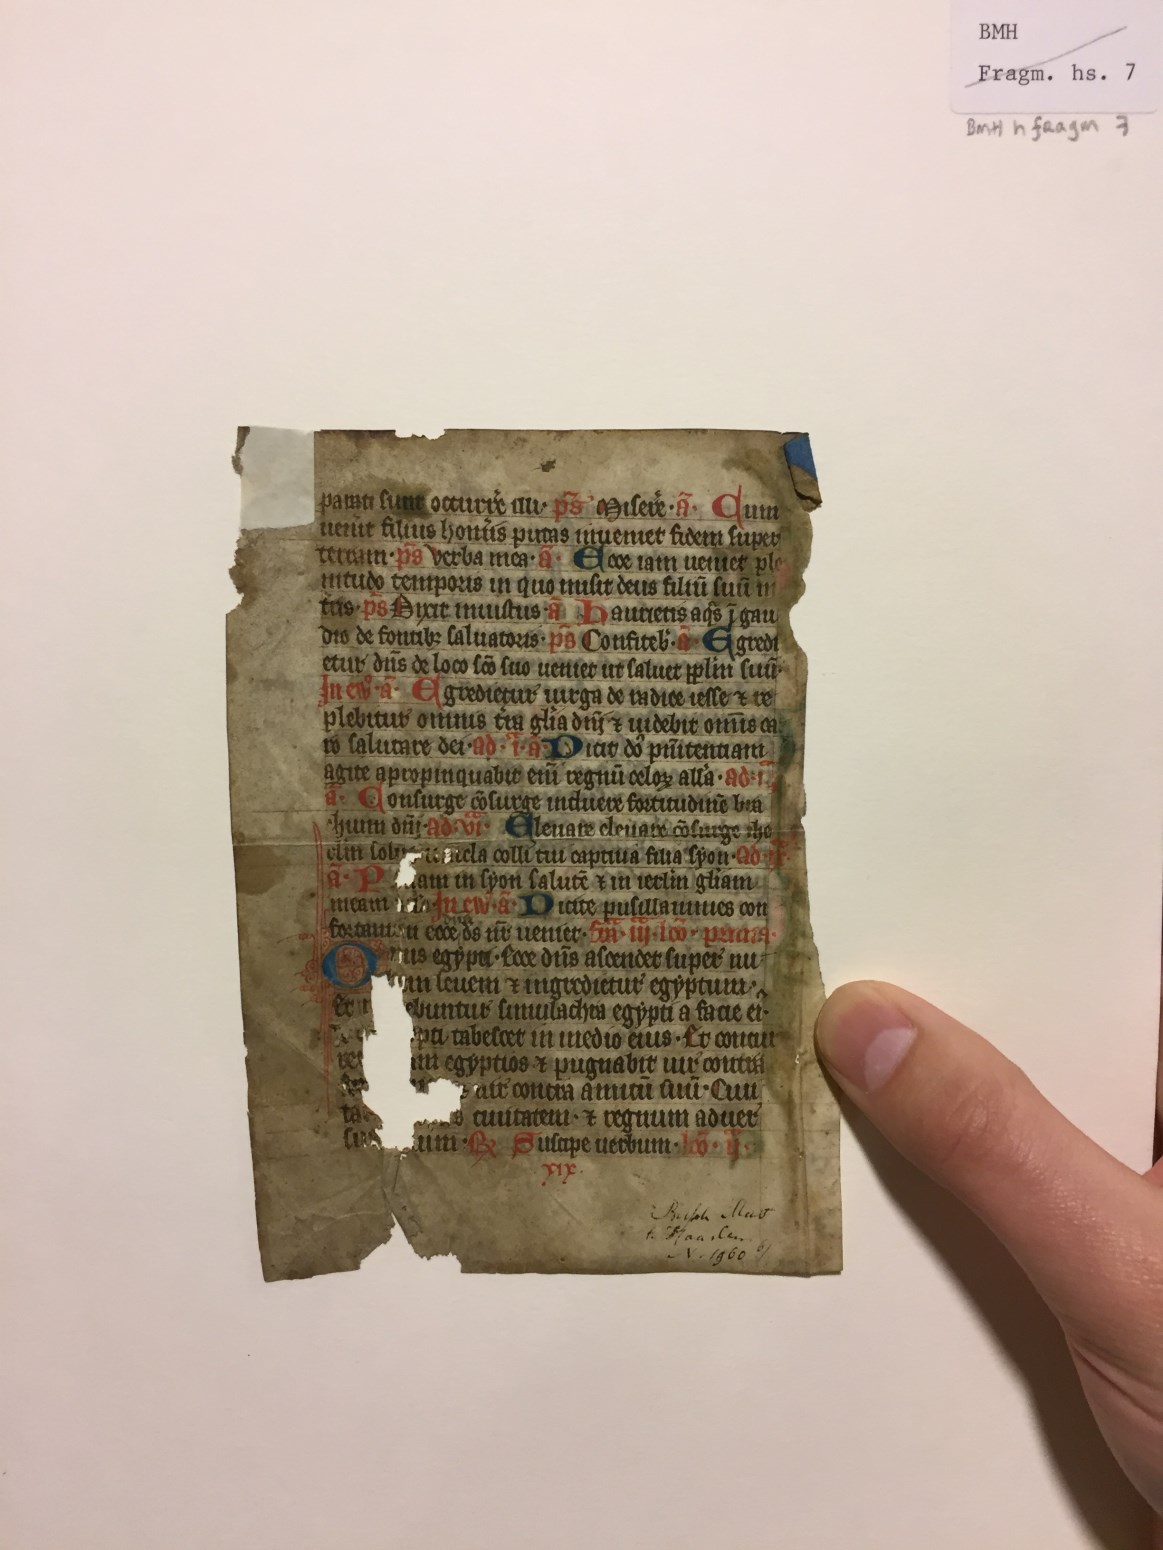 BMH
Fragm. hs. 7
BMH h fragm 7
parati sunt occurre᷒ illi· ps̄ Misere᷒· ā· Cum
uenit filius hoīnis putas inueniet fidem super
terram· ps̄ Verba mea· ā· Ecce iam ueniet ple
nitudo temporis in quo misit deus filiū suū in
t̄ris· ps̄ Dixit iniustus· ā Haurietis aq̄s ī gau
dio de fontibꝫ saluatoris· ps̄ Confiteb᷒· ā· Egredi
etur dn̄s de loco scō suo ueniet ut saluet pplm̄ suū·
In ew̄· ā· Egredietur uirga de radice iesse ⁊ re
plebitur omnis t̄ra gl̄ia dn̄i ⁊ uidebit omīs ca
ro salutare dei· ad· i· ā· Dicit dō pn̄itentiam
agite apropinquabit enī regnū celoꝝ all̄a· ad·
ā· Consurge cōsurge induere fortitudinē bra
chium dn̄i· ad· vi· Eleuare eleuare cōsurge ihe
colli tui captiua filia syon· ad
ā· P am in syon salutē ⁊ in ierl̄m gliam
meam In ew̄· ā· Dicite pusillanimes con
ecce ds̄ nr̄ ueniet· fr̄ia iij lc̄o· prima·
O us egypti· Ecce dn̄s ascendet super nu
m leuem ⁊ ingredietur egyptum·
ebuntur simulachra egypti a facie ei᷒
pti tabescet in medio eius· Et concur
egyptios ⁊ pugnabit uir contra
uir contra amicū suū· Ciui
ciuitatem· ⁊ regnum aduer
um· ℞ Suscipe uerbum· lc̄o· ij·
xix·
N. 1960